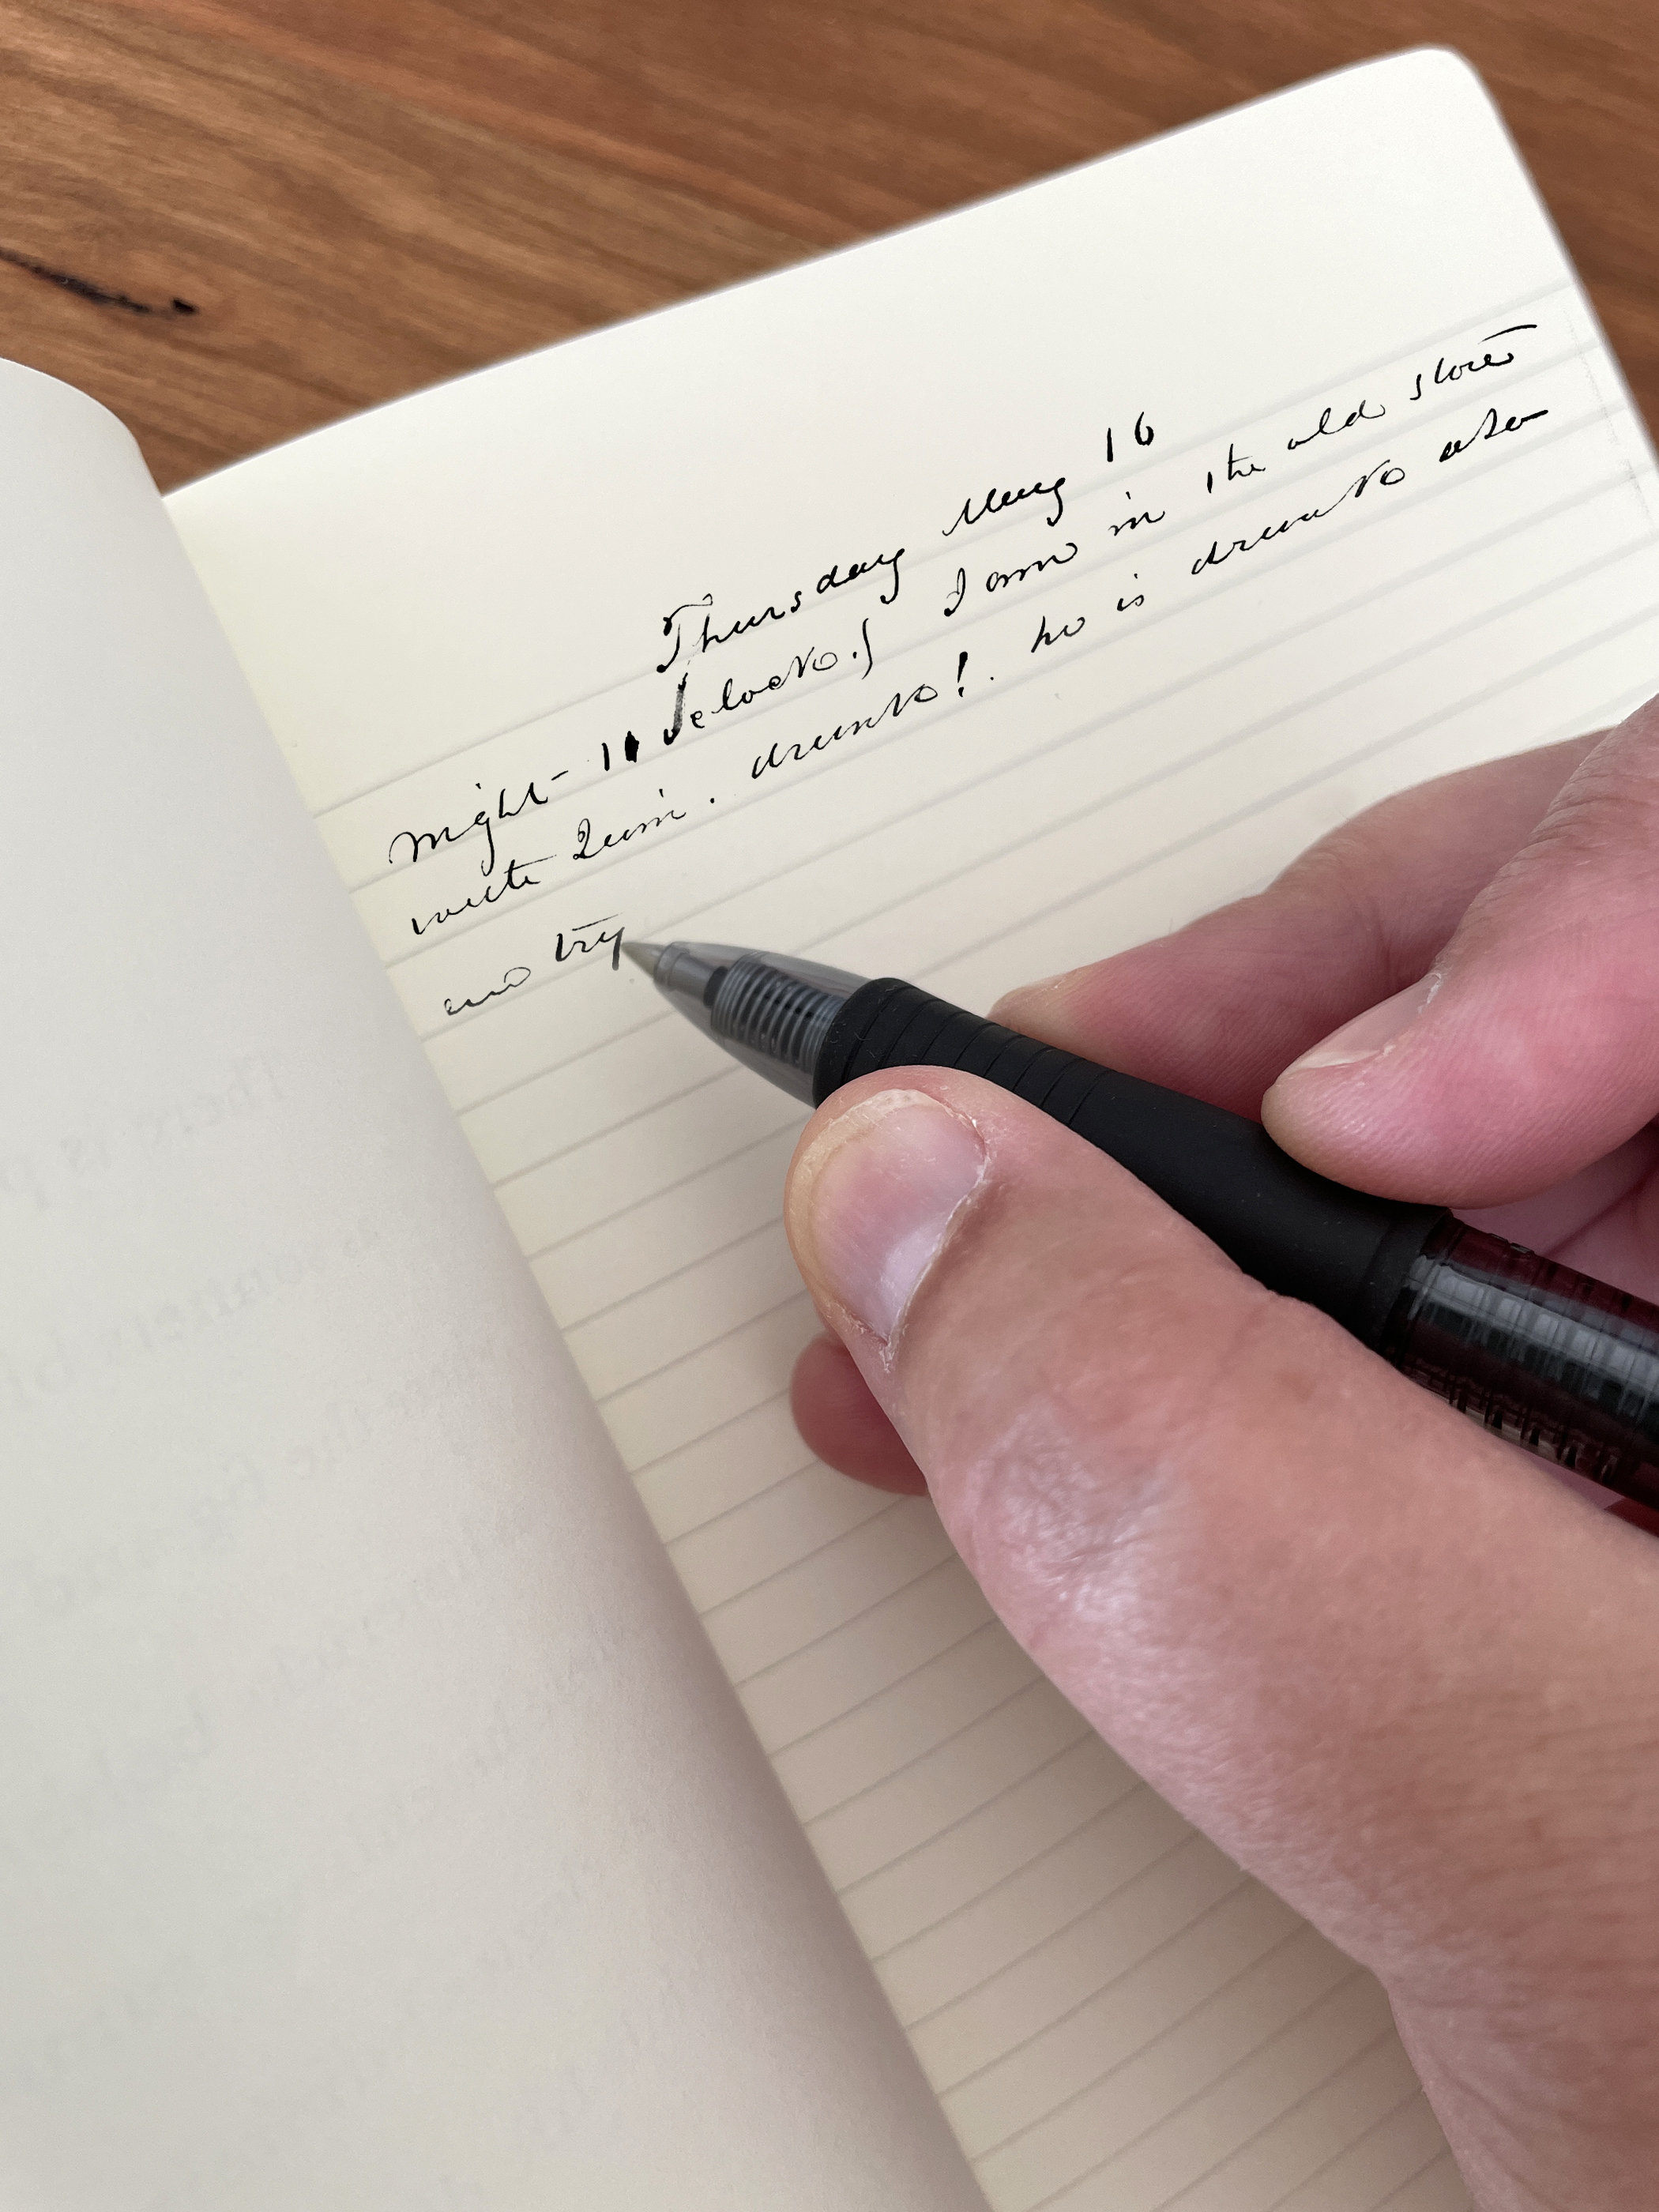 Thursday May 16
night - 11 oclock.) I am in the old store
with Zuni. drunk! he is drunk also
and try